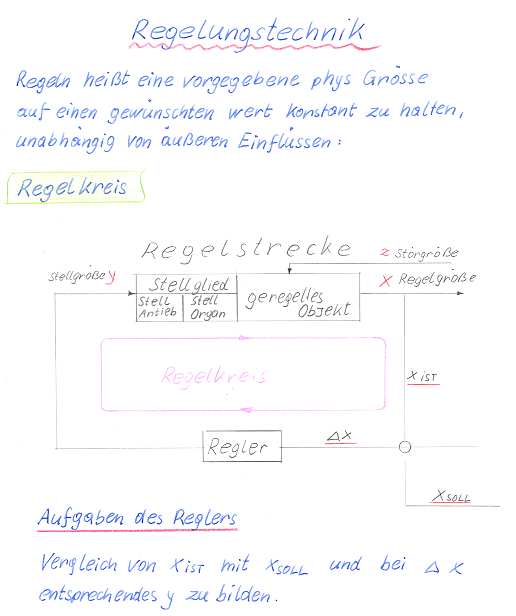 Regelungstechnik
Regeln heißt eine vorgegebene phys Grösse
auf einen gewünschten wert konstant zu halten,
unabhängig von äußeren Einflüssen:
Regelkreis
Regelstrecke
z Störgröße
Stellgröße y
x Regelgröße
Stellglied
Stell Antieb
Stell Organ
geregelles
Objekt
Regelkreis
x IST
Regler
Δx
x SOLL
Aufgaben des Reglers
Vergleich von x IST mit x SOLL und bei Δ x
entsprechendes y zu bilden.